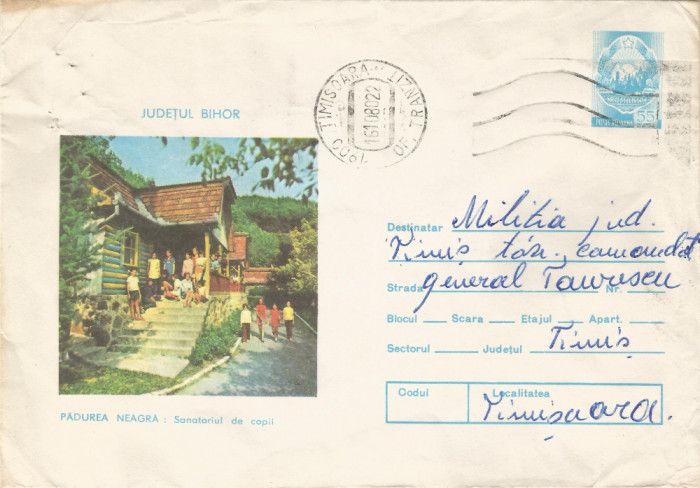 JUDEȚUL BIHOR
TIMIȘOARA TRANZIT
16108022
1900 OF.
POSTA ROMANA 55
Destinatar Militia jud.
Timiș tov. comandat
Strada general Taurescu Nr.
Blocul Scara Etajul Apart.
Sectorul Județul Timiș
Codul Localitatea
Timișoara.
PĂDUREA NEAGRĂ : Sanatoriul de copii